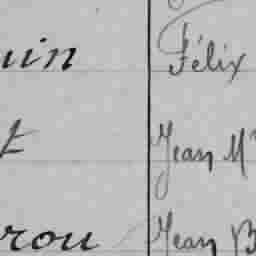 uin Félix
t Jean M
rou Jean B